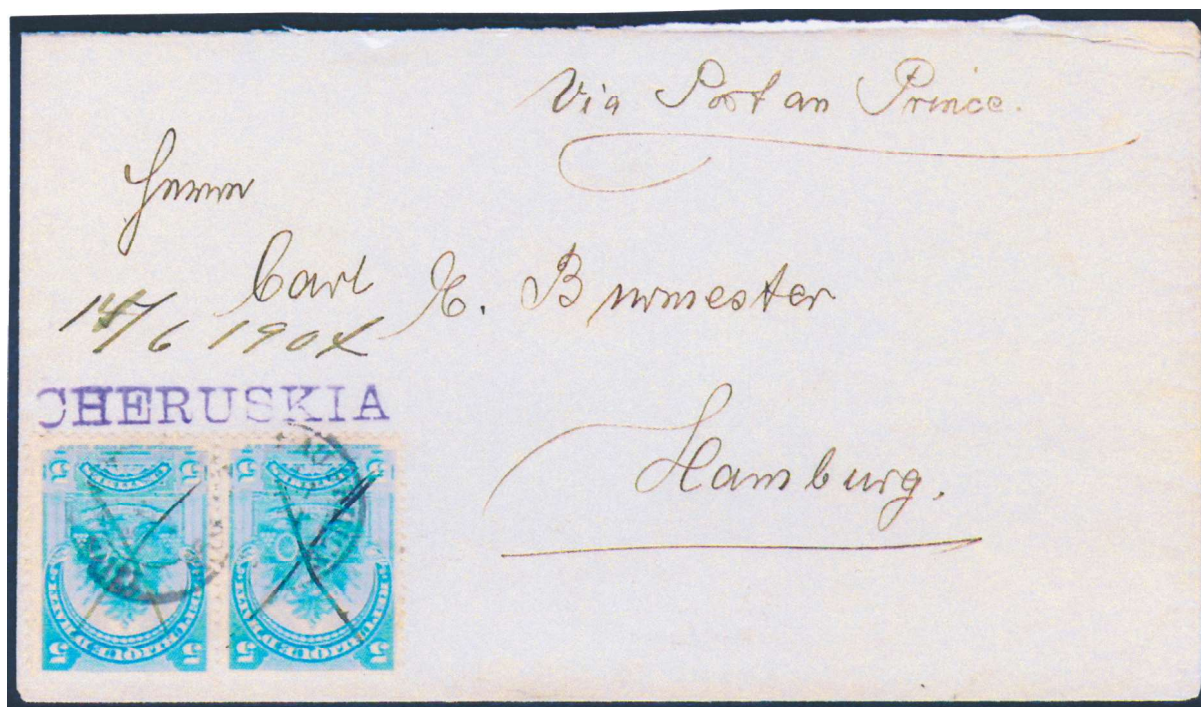 Via Port au Prince.
Herrn
Carl H. Burmester
14/6 1904
CHERUSKIA
Hamburg.
5 5 5 5
5 5 5 5